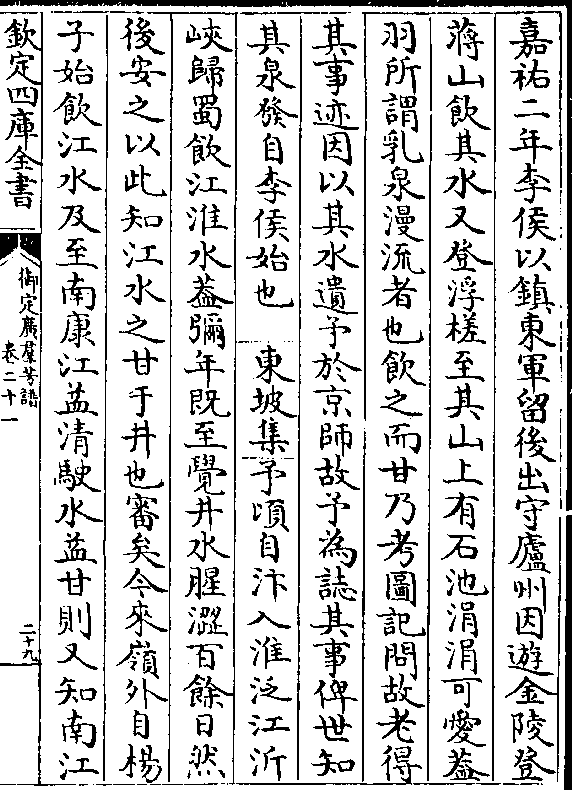 嘉祐二年李侯以鎮東軍留後出守廬州因遊金陵登
蔣山飲其水又登浮槎至其山上有石池涓涓可愛葢
羽所謂乳泉漫流者也飲之而甘乃考圖記問故老得
其事迹因以其水遺予於京師故予為誌其事俾世知
其泉發自李侯始也　東坡集予頃自汴入淮泛江沂
峽歸蜀飲江淮水葢彌年既至覺井水腥澀百餘日然
後安之以此知江水之甘于井也審矣今來嶺外自楊
子始飲江水及至南康江益清駛水益甘則又知南江
欽定四庫全書
御定廣羣芳譜
卷二十一
二十九